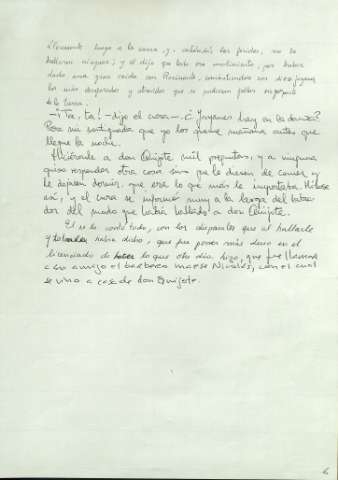 llevaronle luego a la cama, y, catándole las feridas, no le
hallaron ninguna; y él dijo que todo era molimiento, por haber
dado una gran caída con Rocinante, combatiéndose con diez jayanes,
los más desaforados y atrevidos que se pudieran fallar en gran parte
de la tierra.
—¡Ta, ta! —dijo el cura—. ¿Jayanes hay en la danza?
Para mi santiguada que yo los queme mañana antes que
llegue la noche.
Hiciéronle a don Quijote mil preguntas, y a ninguna
quiso responder otra cosa sino que le diesen de comer y
le dejasen dormir, que era lo que más le importaba. Hízose
así, y el cura se informó muy a la larga del labra
dor del modo que había hallado a don Quijote.
Él se lo contó todo, con los disparates que al hallarle
y había dicho, que fue poner más deseo en el
licenciado de hacer lo que otro día hizo, que fue llamar
a su amigo el barbero maese Nicolás, con el cual
se vino a casa de don Quijote.
6